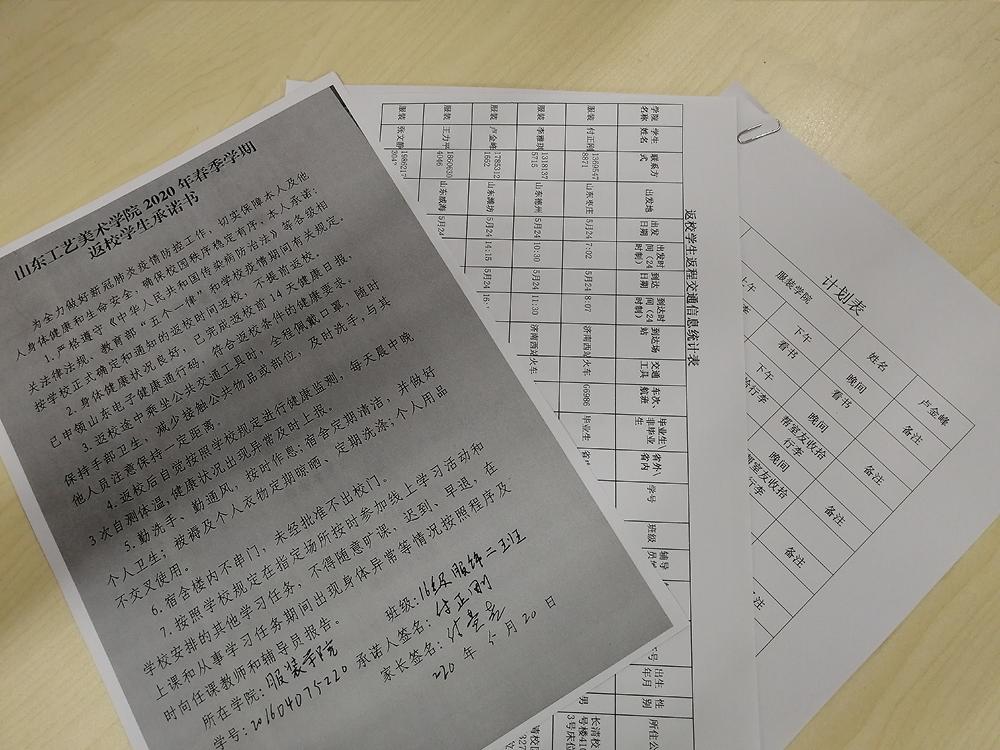 山东工艺美术学院 2020 年春季学期
返校学生承诺书
为全力做好新冠肺炎疫情防控工作，切实保障本人及他
人身体健康和生命安全，确保校园秩序稳定有序，本人承诺：
1.严格遵守《中华人民共和国传染病防治法》等各级相
关法律法规、教育部“五个一律”和学校疫情期间有关规定。
按学校正式确定和通知的返校时间返校，不提前返校。
2.身体健康状况良好，已完成返校前 14 天健康日报，
已申领山东电子健康通行码，符合返校条件的健康要求。
3.返校途中乘坐公共交通工具时，全程佩戴口罩，随时
保持手部卫生，减少接触公共物品或部位，及时洗手，与其
他人员注意保持一定距离。
4.返校后自觉按照学校规定进行健康监测，每天晨中晚
3 次自测体温，健康状况出现异常及时上报。
5.勤洗手、勤通风，按时作息，宿舍定期清洁，并做好
个人卫生；被褥及个人衣物定期晾晒、定期洗涤，个人用品
不交叉使用。
6.宿舍楼内不串门，未经批准不出校门。
7.按照学校规定在指定场所按时参加线上学习活动和
学校安排的其他学习任务，不得随意旷课、迟到、早退，在
上课和从事学习任务期间出现身体异常等情况按照程序及
时向任课教师和辅导员报告。
所在学院：服装学院
班级：16级服饰二班
学号：201604075220
承诺人签名：付正刚
家长签名：
220 年 5 月 20 日
返校学生返程交通信息统计表
学院名称 学生姓名 联系方式 出发地 出发日期 出发时间（24时制） 到达日期 到达时间（24时制） 到达场站 交通工具 车次、航班 毕业生\非毕业生 省外\省内 学号 班级 辅导员
出生年月 性别 所住公
服装 付正刚 1369547 8871 山东枣庄 5月24 7:02 5月24 8:07 济南西站 火车 G6986 毕业生 省
服装 李雅琪 1318137 5715 山东德州 5月24 10:30 5月24 11:30 济南西站 火车
服装 卢金峰 1785312 1662 山东潍坊 5月24 14:15 5月24 16:
服装 王力平 1860630 4046 山东威海 5月24
服装 张文静 1986217 3047
男 长清校 号楼416 3号床位
计划表
服装学院 姓名 卢金峰
上午 下午 晚间 备注
看书 看书
下午 晚间 备注
行李 帮室友收拾行李
晚间 备注
室友收拾行李
备注
备注